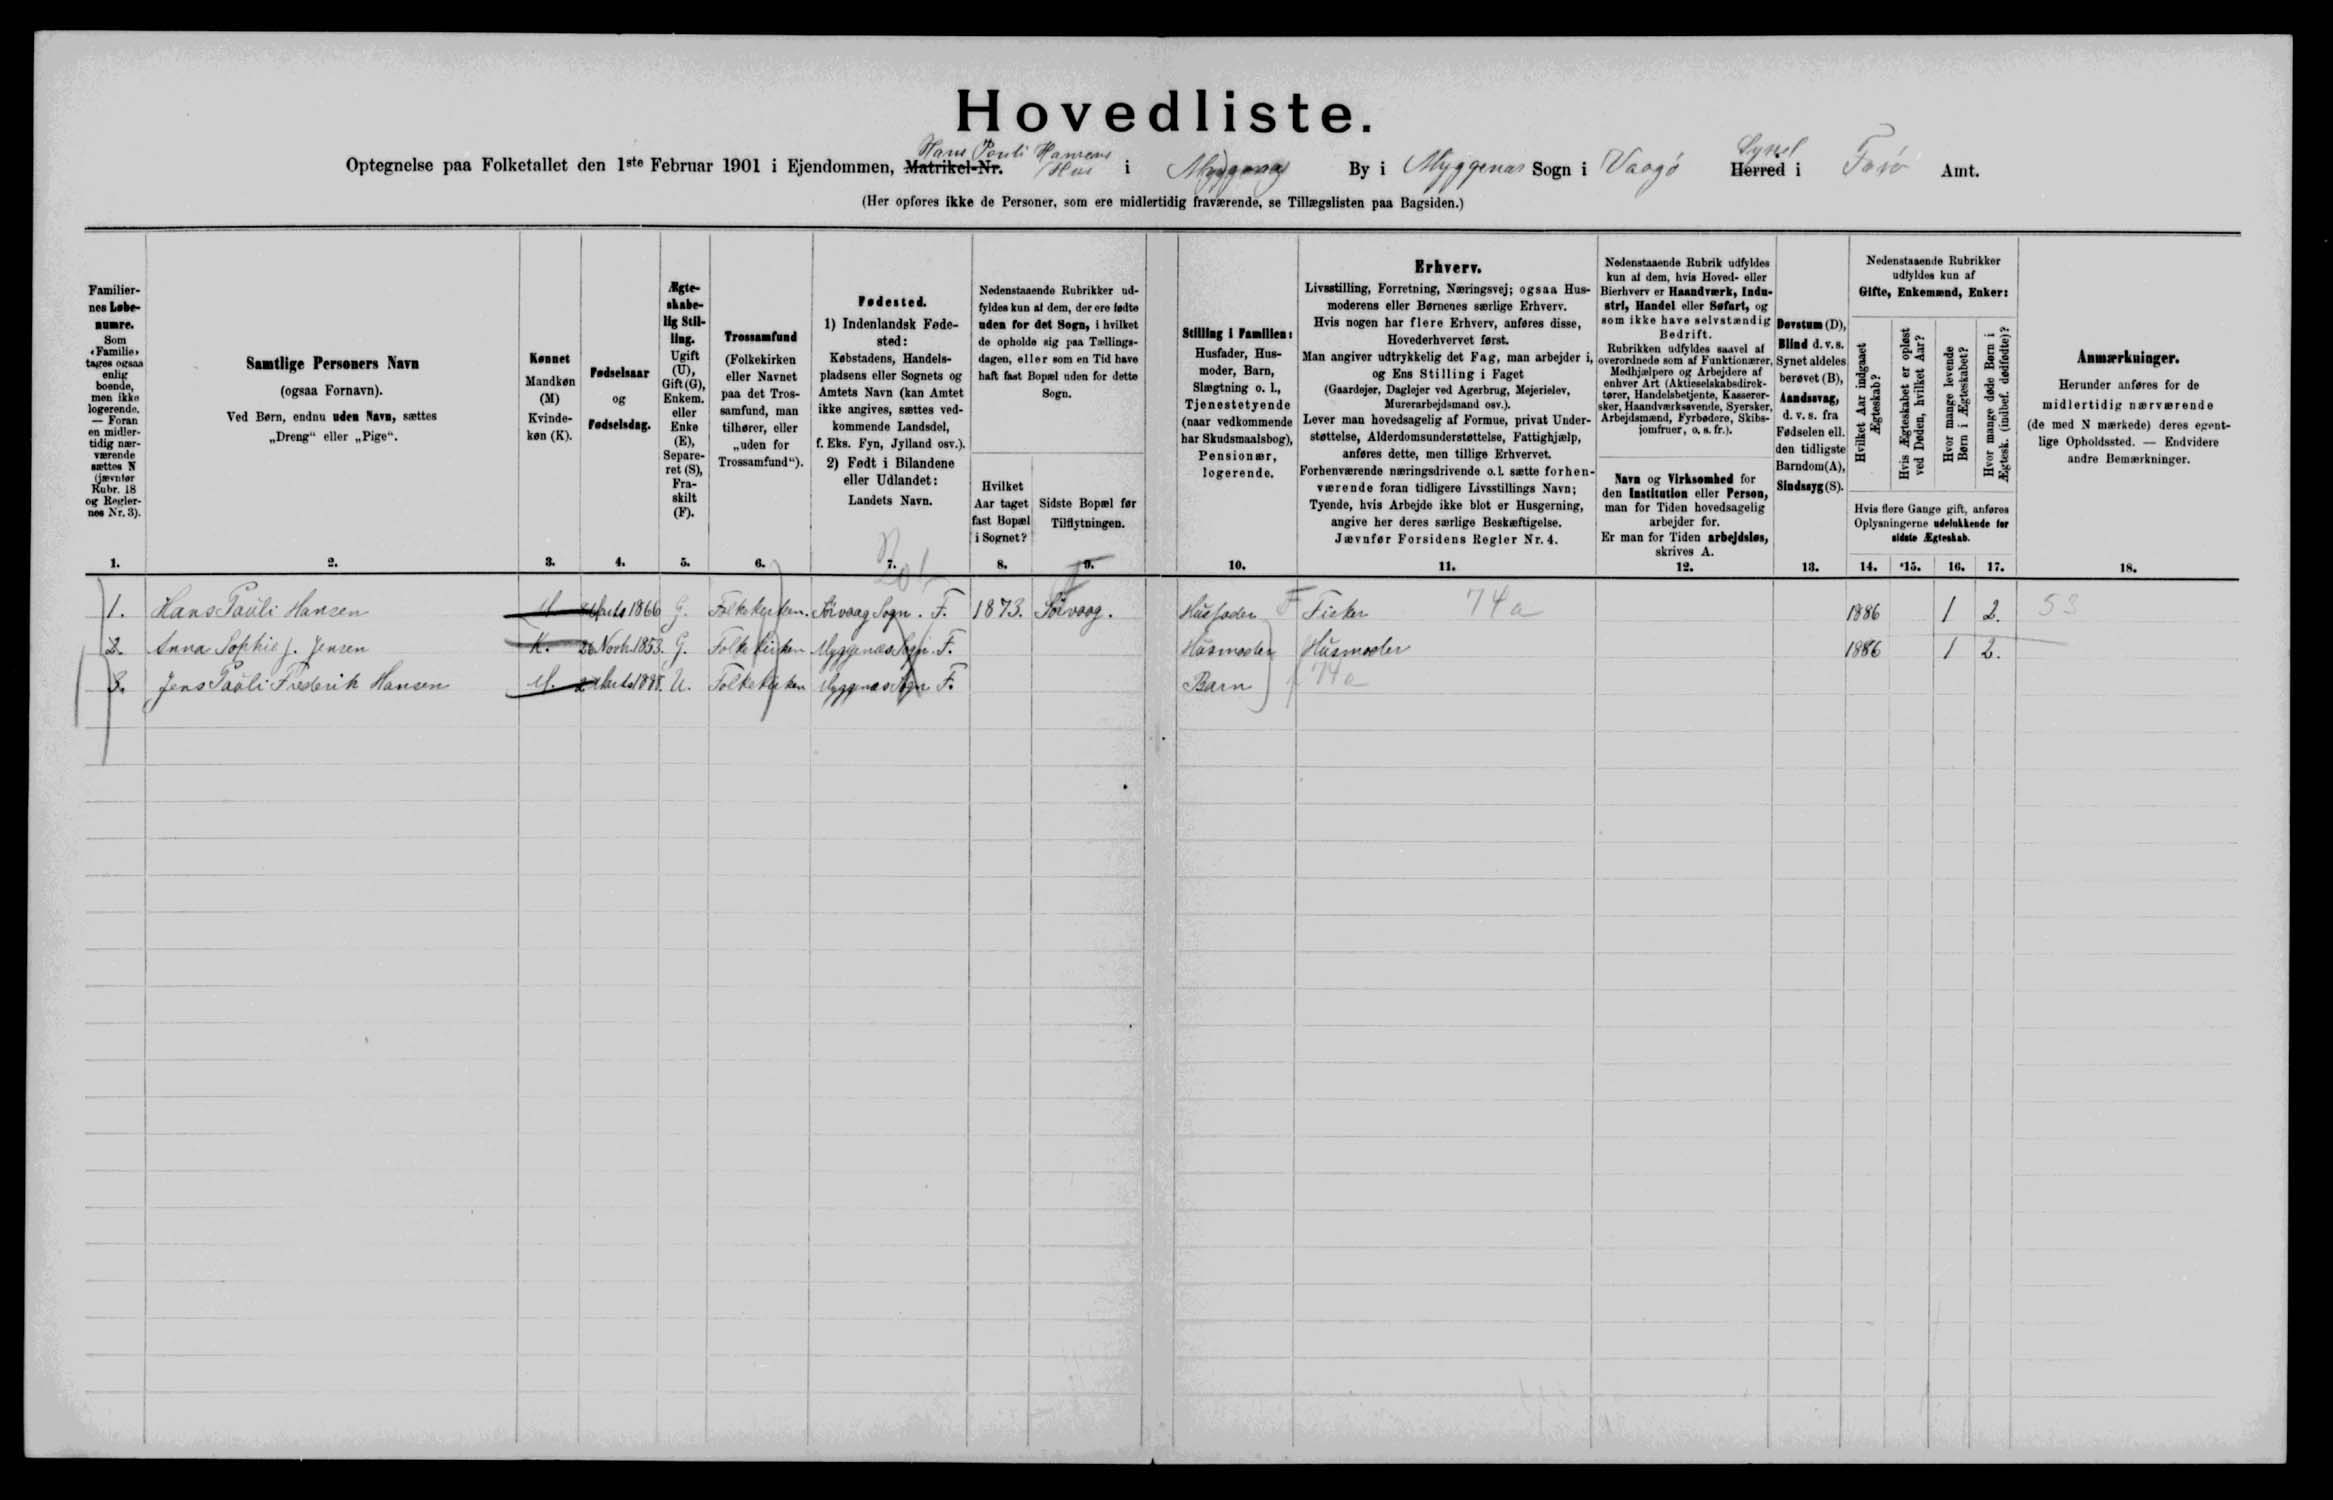 Hovedliste.
Optegnelse paa Folketallet den 1ste Februar 1901 i Ejendommen, Matrikel-Nr. Hans Pouli Hansens Hus i Myggenæs By i Myggenæs Sogn i Vaagø Herred Syssel i Færø Amt.
(Her opføres ikke de Personer, som ere midlertidig fraværende, se Tillægslisten paa Bagsiden.)
Familier-
nes Løbe-
numre.
Som
«Familie»
tages ogsaa
enlig
boende,
men ikke
logerende.
— Foran
en midler-
tidig nær-
værende
sættes N
(jævnfør
Rubr. 18
og Regler-
nes Nr. 3).
1.
Samtlige Personers Navn
(ogsaa Fornavn).
Ved Børn, endnu uden Navn, sættes
„Dreng“ eller „Pige“.
2.
Kønnet
Mandkøn
(M)
Kvinde-
køn (K).
3.
Fødselsaar
og
Fødselsdag.
4.
Ægte-
skabe-
lig Stil-
ling.
Ugift
(U),
Gift (G),
Enkem.
eller
Enke
(E),
Separe-
ret (S),
Fra-
skilt
(F).
5.
Trossamfund
(Folkekirken
eller Navnet
paa det Tros-
samfund, man
tilhører, eller
„uden for
Trossamfund“).
6.
Fødested.
1) Indenlandsk Føde-
sted:
Købstadens, Handels-
pladsens eller Sognets og
Amtets Navn (kan Amtet
ikke angives, sættes ved-
kommende Landsdel,
f. Eks. Fyn, Jylland osv.).
2) Født i Bilandene
eller Udlandet:
Landets Navn.
7.
Nedenstaaende Rubrikker ud-
fyldes kun af dem, der ere fødte
uden for det Sogn, i hvilket
de opholde sig paa Tællings-
dagen, eller som en Tid have
haft fast Bopæl uden for dette
Sogn.
Hvilket
Aar taget
fast Bopæl
i Sognet?
8.
Sidste Bopæl før
Tilflytningen.
9.
Stilling i Familien:
Husfader, Hus-
moder, Barn,
Slægtning o. l.,
Tjenestetyende
(naar vedkommende
har Skudsmaalsbog),
Pensionær,
logerende.
10.
Erhverv.
Livsstilling, Forretning, Næringsvej; ogsaa Hus-
moderens eller Børnenes særlige Erhverv.
Hvis nogen har flere Erhverv, anføres disse,
Hovederhvervet først.
Man angiver udtrykkelig det Fag, man arbejder i,
og Ens Stilling i Faget
(Gaardejer, Daglejer ved Agerbrug, Mejerielev,
Murerarbejdsmand osv.).
Lever man hovedsagelig af Formue, privat Under-
støttelse, Alderdomsunderstøttelse, Fattighjælp,
anføres dette, men tillige Erhvervet.
Forhenværende næringsdrivende o.l. sætte forhen-
værende foran tidligere Livsstillings Navn;
Tyende, hvis Arbejde ikke blot er Husgerning,
angive her deres særlige Beskæftigelse.
Jævnfør Forsidens Regler Nr. 4.
11.
Nedenstaaende Rubrik udfyldes
kun af dem, hvis Hoved- eller
Bierhverv er Haandværk, Indu-
stri, Handel eller Søfart, og
som ikke have selvstændig
Bedrift.
Rubrikken udfyldes saavel af
overordnede som af Funktionærer,
Medhjælpere og Arbejdere af
enhver Art (Aktieselskabsdirek-
tører, Handelsbetjente, Kasserer-
sker, Haandværkssvende, Syersker,
Arbejdsmænd, Fyrbødere, Skibs-
jomfruer, o. s. fr.).
Navn og Virksomhed for
den Institution eller Person,
man for Tiden hovedsagelig
arbejder for.
Er man for Tiden arbejdsløs,
skrives A.
12.
Døvstum (D),
Blind d. v. s.
Synet aldeles
berøvet (B),
Aandssvag,
d. v. s. fra
Fødselen ell.
den tidligste
Barndom(A),
Sindssyg (S).
13.
Nedenstaaende Rubrikker
udfyldes kun af
Gifte, Enkemænd, Enker:
Hvilket Aar indgaaet
Ægteskab?
Hvis Ægteskabet er opløst
ved Døden, hvilket Aar?
Hvor mange levende
Børn i Ægteskabet?
Hvor mange døde Børn i
Ægtesk. (indbef. dødfødte)?
Hvis flere Gange gift, anføres
Oplysningerne udelukkende for
sidste Ægteskab.
14. 15. 16. 17.
Anmærkninger.
Herunder anføres for de
midlertidig nærværende
(de med N mærkede) deres egent-
lige Opholdssted. — Endvidere
andre Bemærkninger.
18.
1. Hans Paúli Hansen M. 1866 G. Folkekirken. Sörvaag Sogn. F. 1873. Sörvaag. Húsfader F Fisker 74a 1886 1 2. 53
2. Anna Sophie J. Jensen K. 26 Novb. 1853. G. Folkekirken Myggenæs Sogn. F. Húsmoder Húsmoder 1886 1 2.
3. Jens Paúli Frederik Hansen M. U. Folkekirken Myggenæs Sogn F. Barn 74a